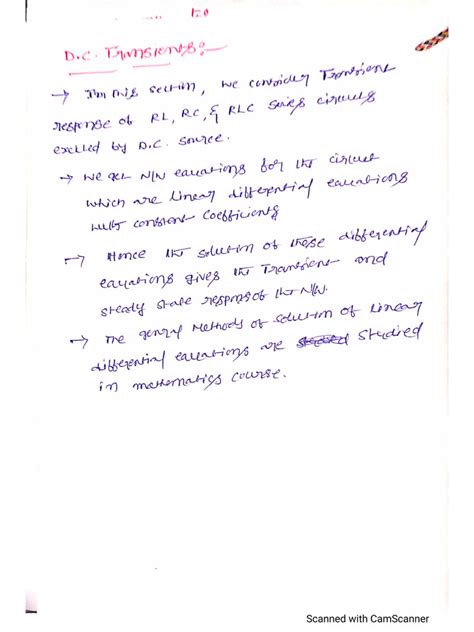 120
D.C. Transients:-
→ In this section, we consider Transient
response of RL, RC, & RLC series circuits
excited by D.C. source.
→ We get N/W equations for the circuit
which are linear differential equations
with constant coefficients
→ Hence the solution of these differential
equations gives the Transient and
steady state response of the N/W.
→ The general Methods of solution of linear
differential equations are studied
in mathematics course.
Scanned with CamScanner